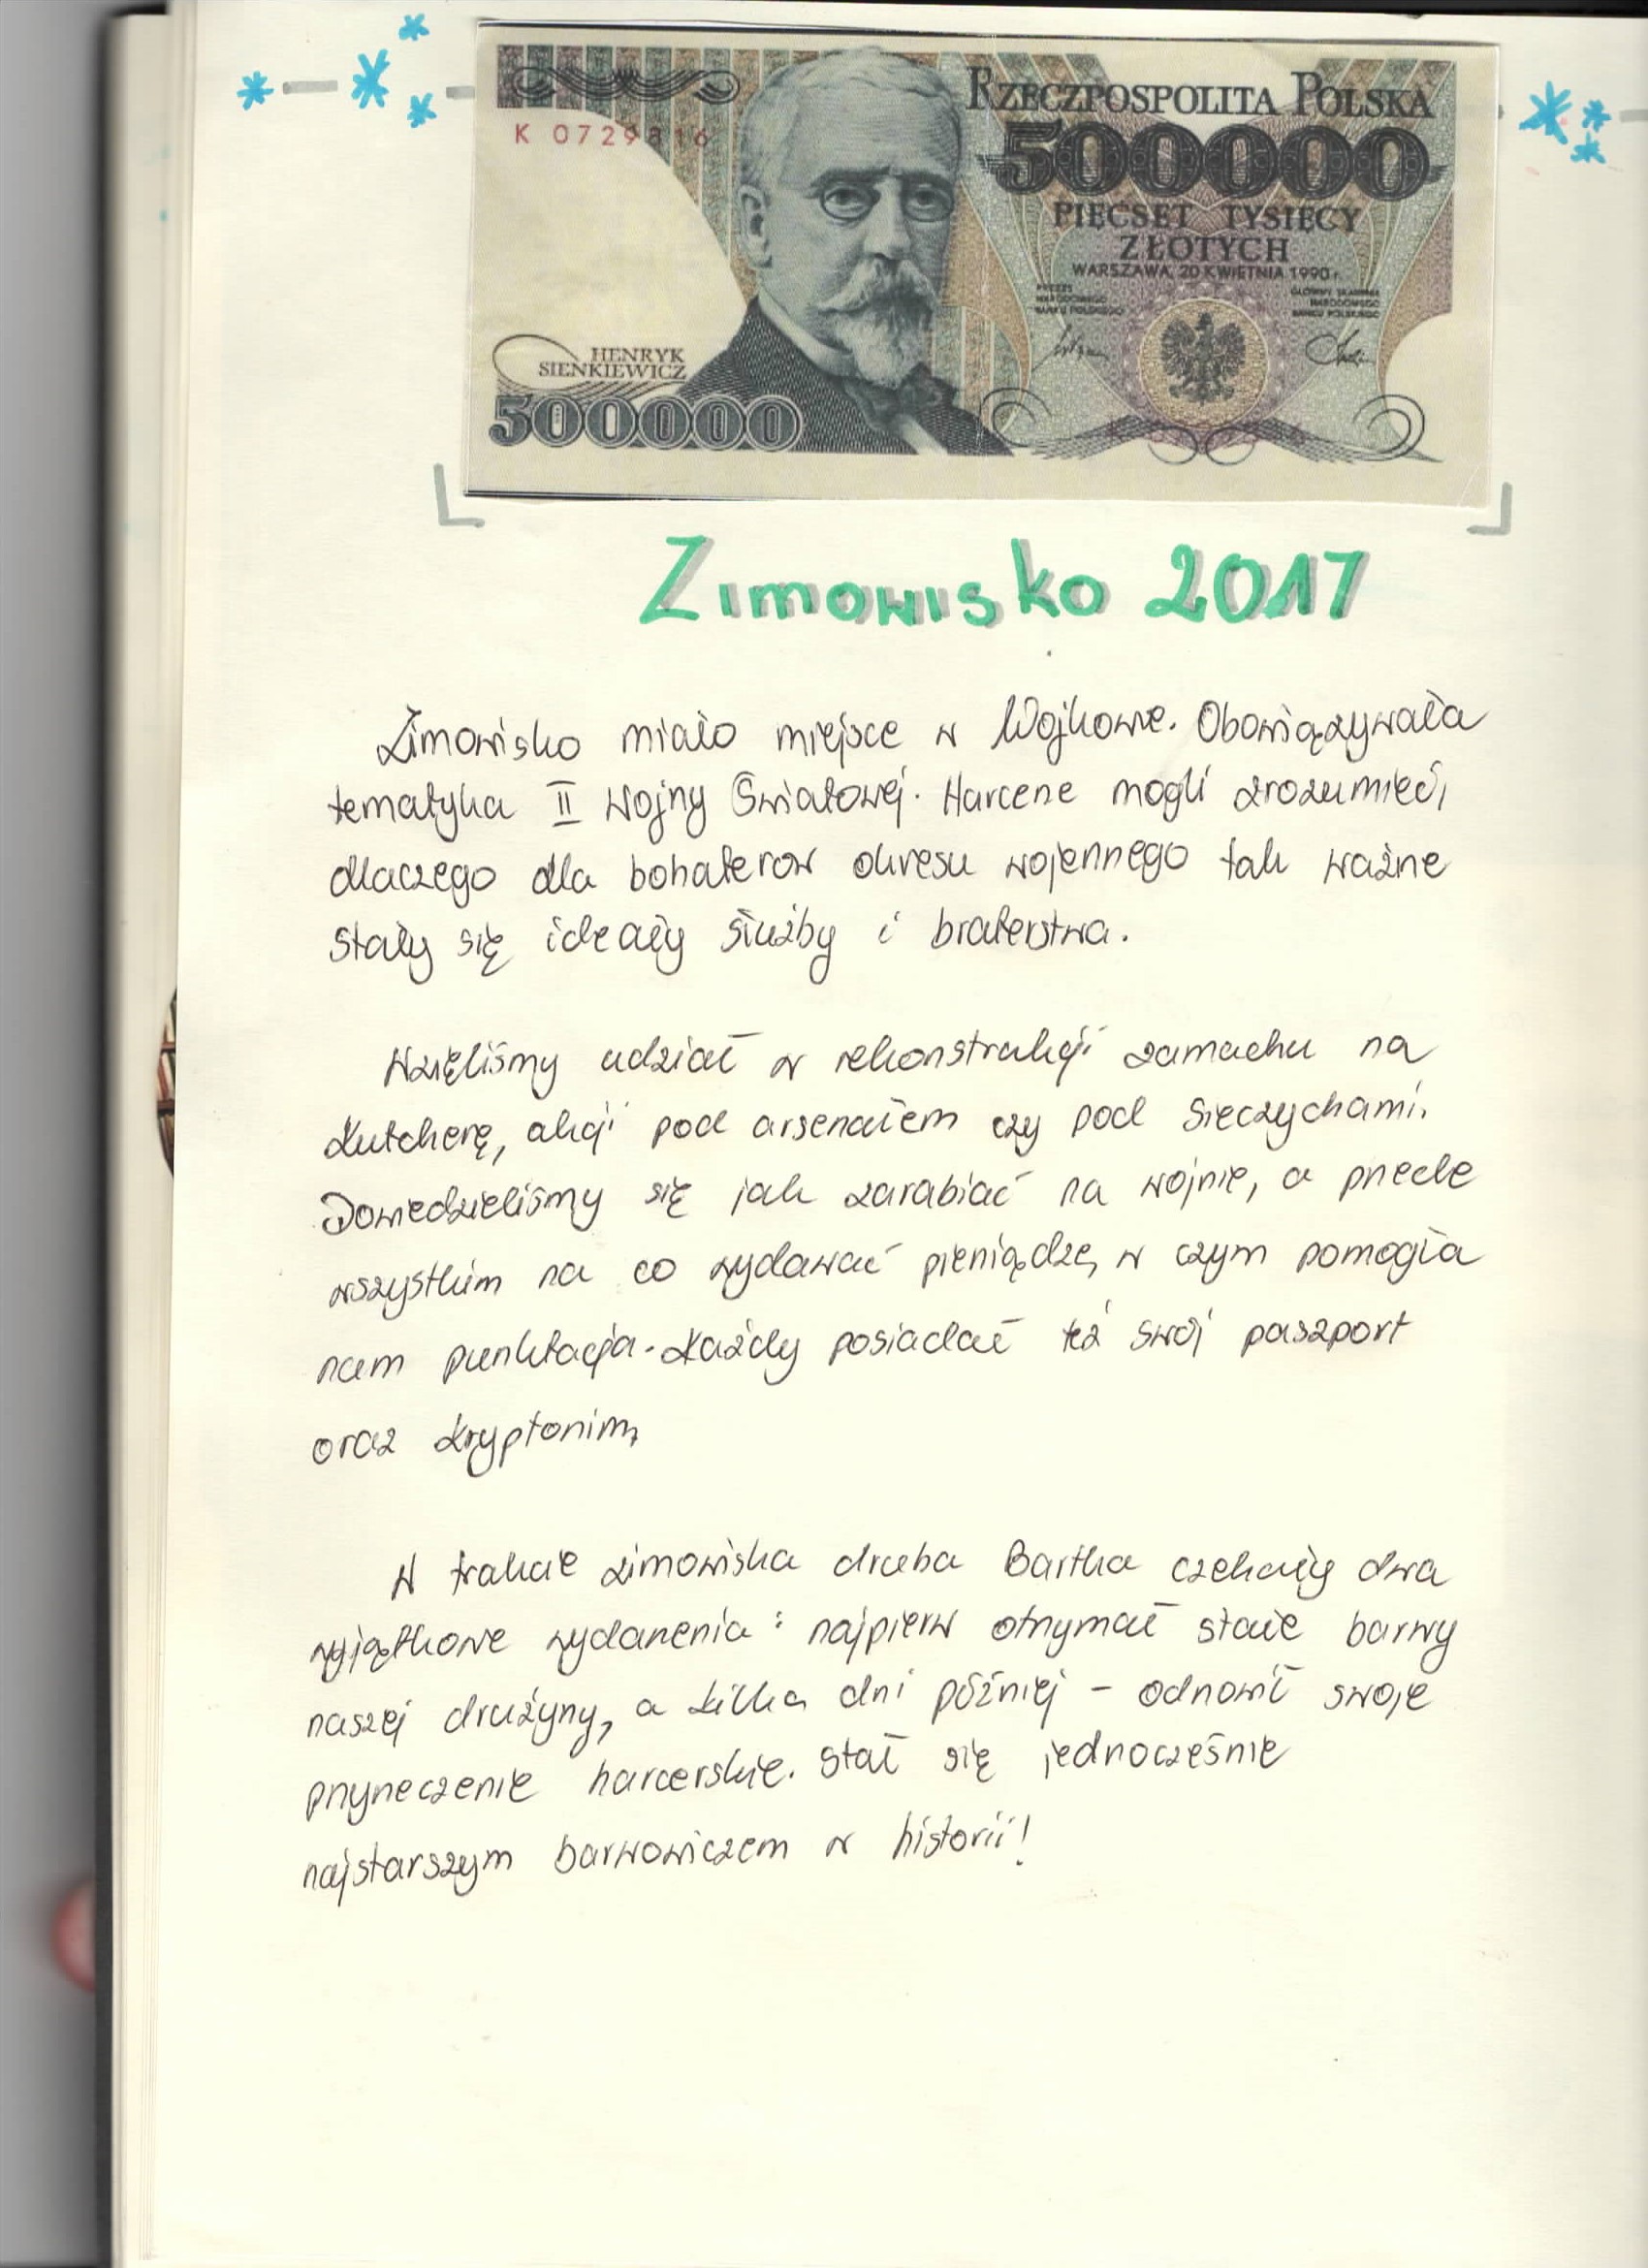 RZECZPOSPOLITA POLSKA
K 0729816
500000
PIĘĆSET TYSIĘCY
ZŁOTYCH
WARSZAWA, 20 KWIETNIA 1990 r.
PREZES
NARODOWEGO
BANKU POLSKIEGO
GŁÓWNY SKARBNIK
NARODOWEGO
BANKU POLSKIEGO
HENRYK
SIENKIEWICZ
500000
Zimowisko 2017
Zimowisko miało miejsce w Wojkowie. Obowiązywała
tematyka II Wojny Światowej. Harcerze mogli zrozumieć,
dlaczego dla bohaterow okresu wojennego tak ważne
stały się ideały służby i braterstwa.
Wzięliśmy udział w rekonstrukcji zamachu na
Kutcherę, akcji pod arsenałem czy pod Sieczychami.
Dowiedzieliśmy się jak zarabiać na wojnie, a przede
wszystkim na co wydawać pieniądze, w czym pomogła
nam punktacja. Każdy posiadał też swój paszport
oraz kryptonim.
W trakcie zimowiska druha Bartka czekały dwa
wyjątkowe wydarzenia: najpierw otrzymał stałe barwy
naszej drużyny, a kilka dni później - odnowił swoje
przyrzeczenie harcerskie. Stał się jednocześnie
najstarszym barwowiczem w historii!